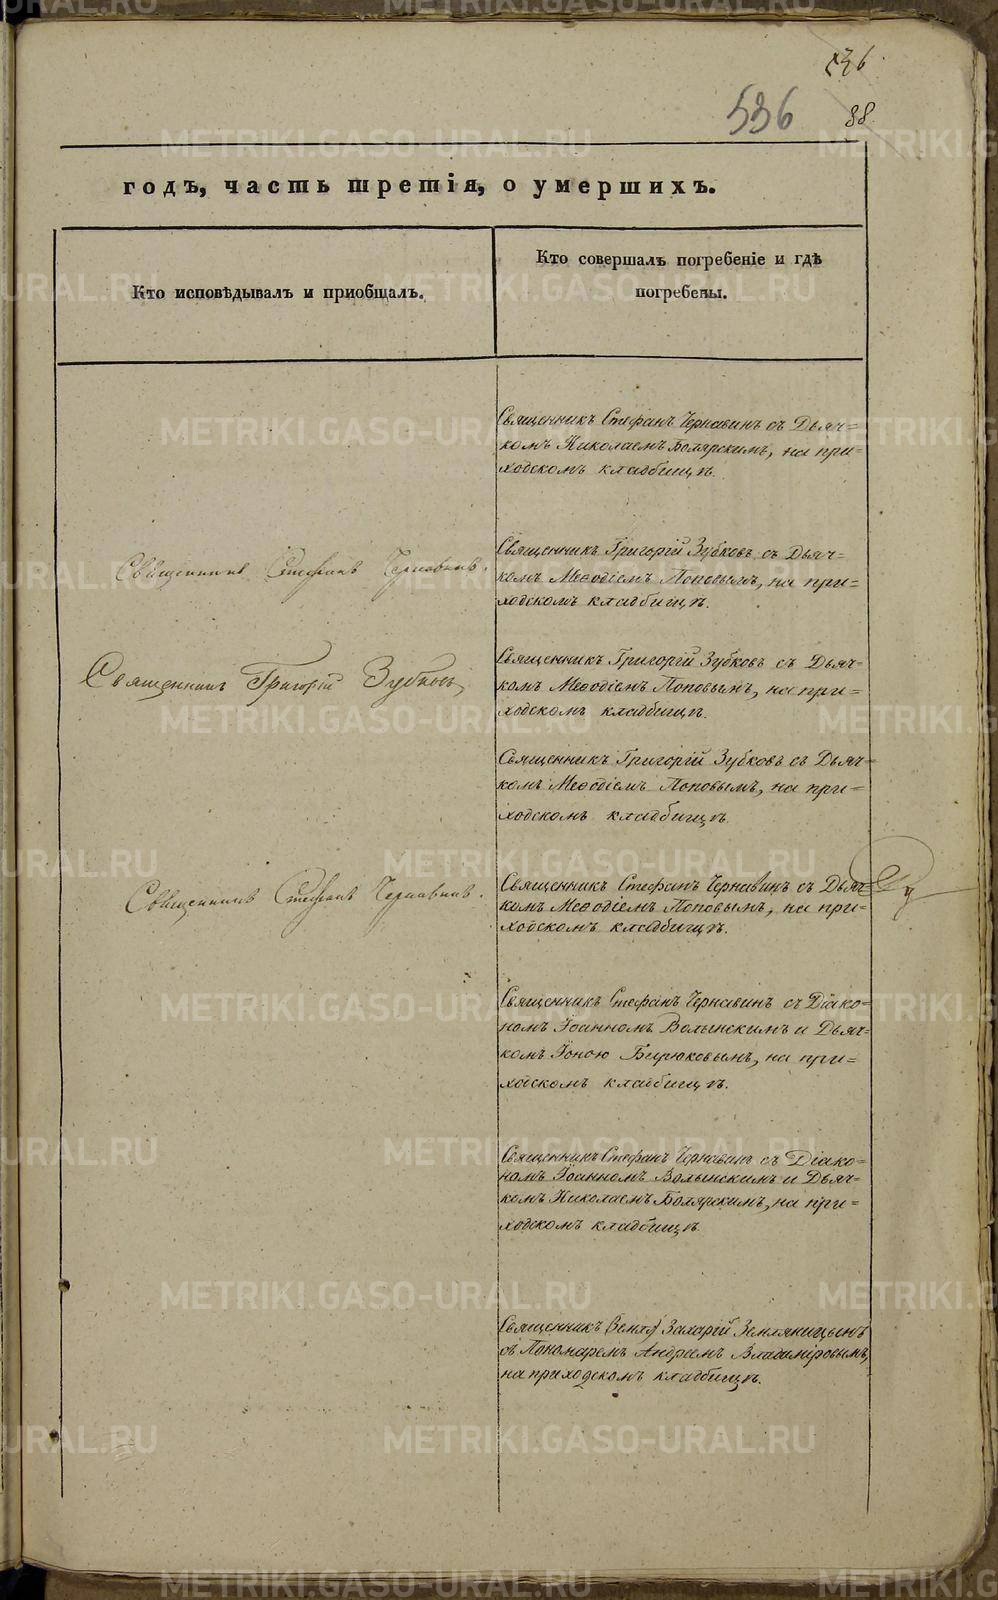 536
536
88.
годъ, часть третія, о умершихъ.
Кто исповѣдывалъ и приобщалъ.
Кто совершалъ погребеніе и гдѣ
погребены.
Священникъ Стефанъ Чернавинъ съ Дьяч=
комъ Николаемъ Боярскимъ, на при=
ходскомъ кладбищѣ.
Священникъ Стефанъ Чернавинъ.
Священникъ Григорій Зубковъ съ Дьяч=
комъ Меѳодіемъ Поповымъ, на при=
ходскомъ кладбищѣ.
Священникъ Григорій Зубковъ,
Священникъ Григорій Зубковъ съ Дьяч=
комъ Меѳодіемъ Поповымъ, на при=
ходскомъ кладбищѣ.
Священникъ Григорій Зубковъ съ Дьяч=
комъ Меѳодіемъ Поповымъ, на при=
ходскомъ кладбищѣ.
Священникъ Стефанъ Чернавинъ.
Священникъ Стефанъ Чернавинъ съ Дьяч=
комъ Меѳодіемъ Поповымъ, на при=
ходскомъ кладбищѣ.
Священникъ Стефанъ Чернавинъ съ Діако=
номъ Іоанномъ Волынскимъ и Дьяч=
комъ Іоною Бирюковымъ, на при=
ходскомъ кладбищѣ.
Священникъ Стефанъ Чернавинъ съ Діако=
номъ Іоанномъ Волынскимъ и Дьяч=
комъ Николаемъ Боярскимъ, на при=
ходскомъ кладбищѣ.
Священникъ Захарій Земляницынъ
съ Пономаремъ Андреемъ Владиміровымъ,
на приходскомъ кладбищѣ.
METRIKI.GASO-URAL.RU